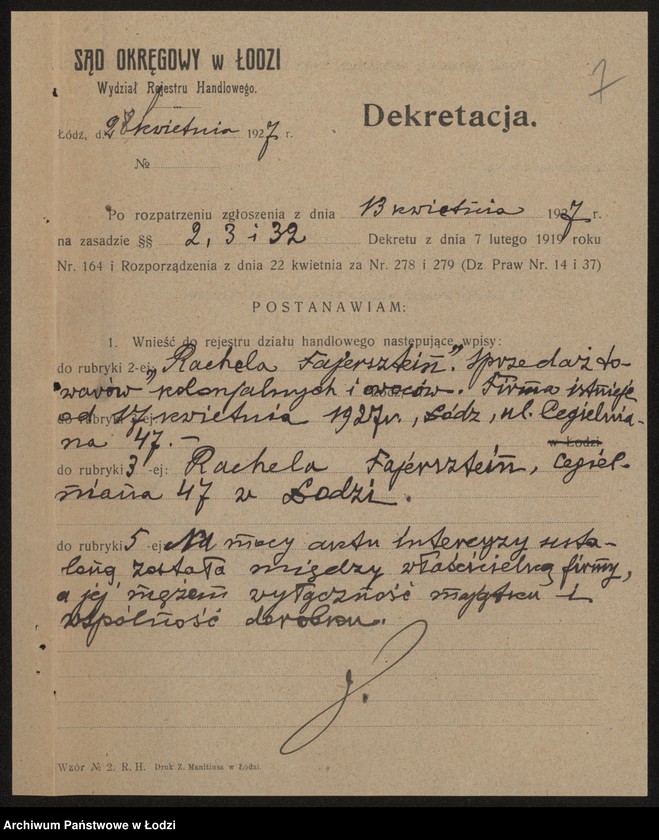 SĄD OKRĘGOWY w ŁODZI
Wydział Rejestru Handlowego.
7
Dekretacja.
Łódź, d. 28 kwietnia 1927 r.
№
Po rozpatrzeniu zgłoszenia z dnia 13 kwietnia 1927 r.
na zasadzie §§ 2, 3 i 32 Dekretu z dnia 7 lutego 1919 roku
Nr. 164 i Rozporządzenia z dnia 22 kwietnia za Nr. 278 i 279 (Dz Praw Nr. 14 i 37)
POSTANAWIAM:
1. Wnieść do rejestru działu handlowego następujące wpisy:
do rubryki 2-ej: „Rachela Fajersztein". Sprzedaż to-
warów kolonjalnych i owoców. Firma istnieje
od 17 kwietnia 1927 r., Łódź, ul. Cegielnia-
na 47. –
w Łodzi
do rubryki 3 -ej: Rachela Fajersztein, Cegiel-
niana 47 w Łodzi.
do rubryki 5 -ej Na mocy aktu intercyzy usta-
loną została między właścicielką firmy,
a jej mężem wyłączność majątku i
wspólność dorobku.
Wzór № 2. R. H. Druk Z. Manitiusa w Łodzi.
Archiwum Państwowe w Łodzi